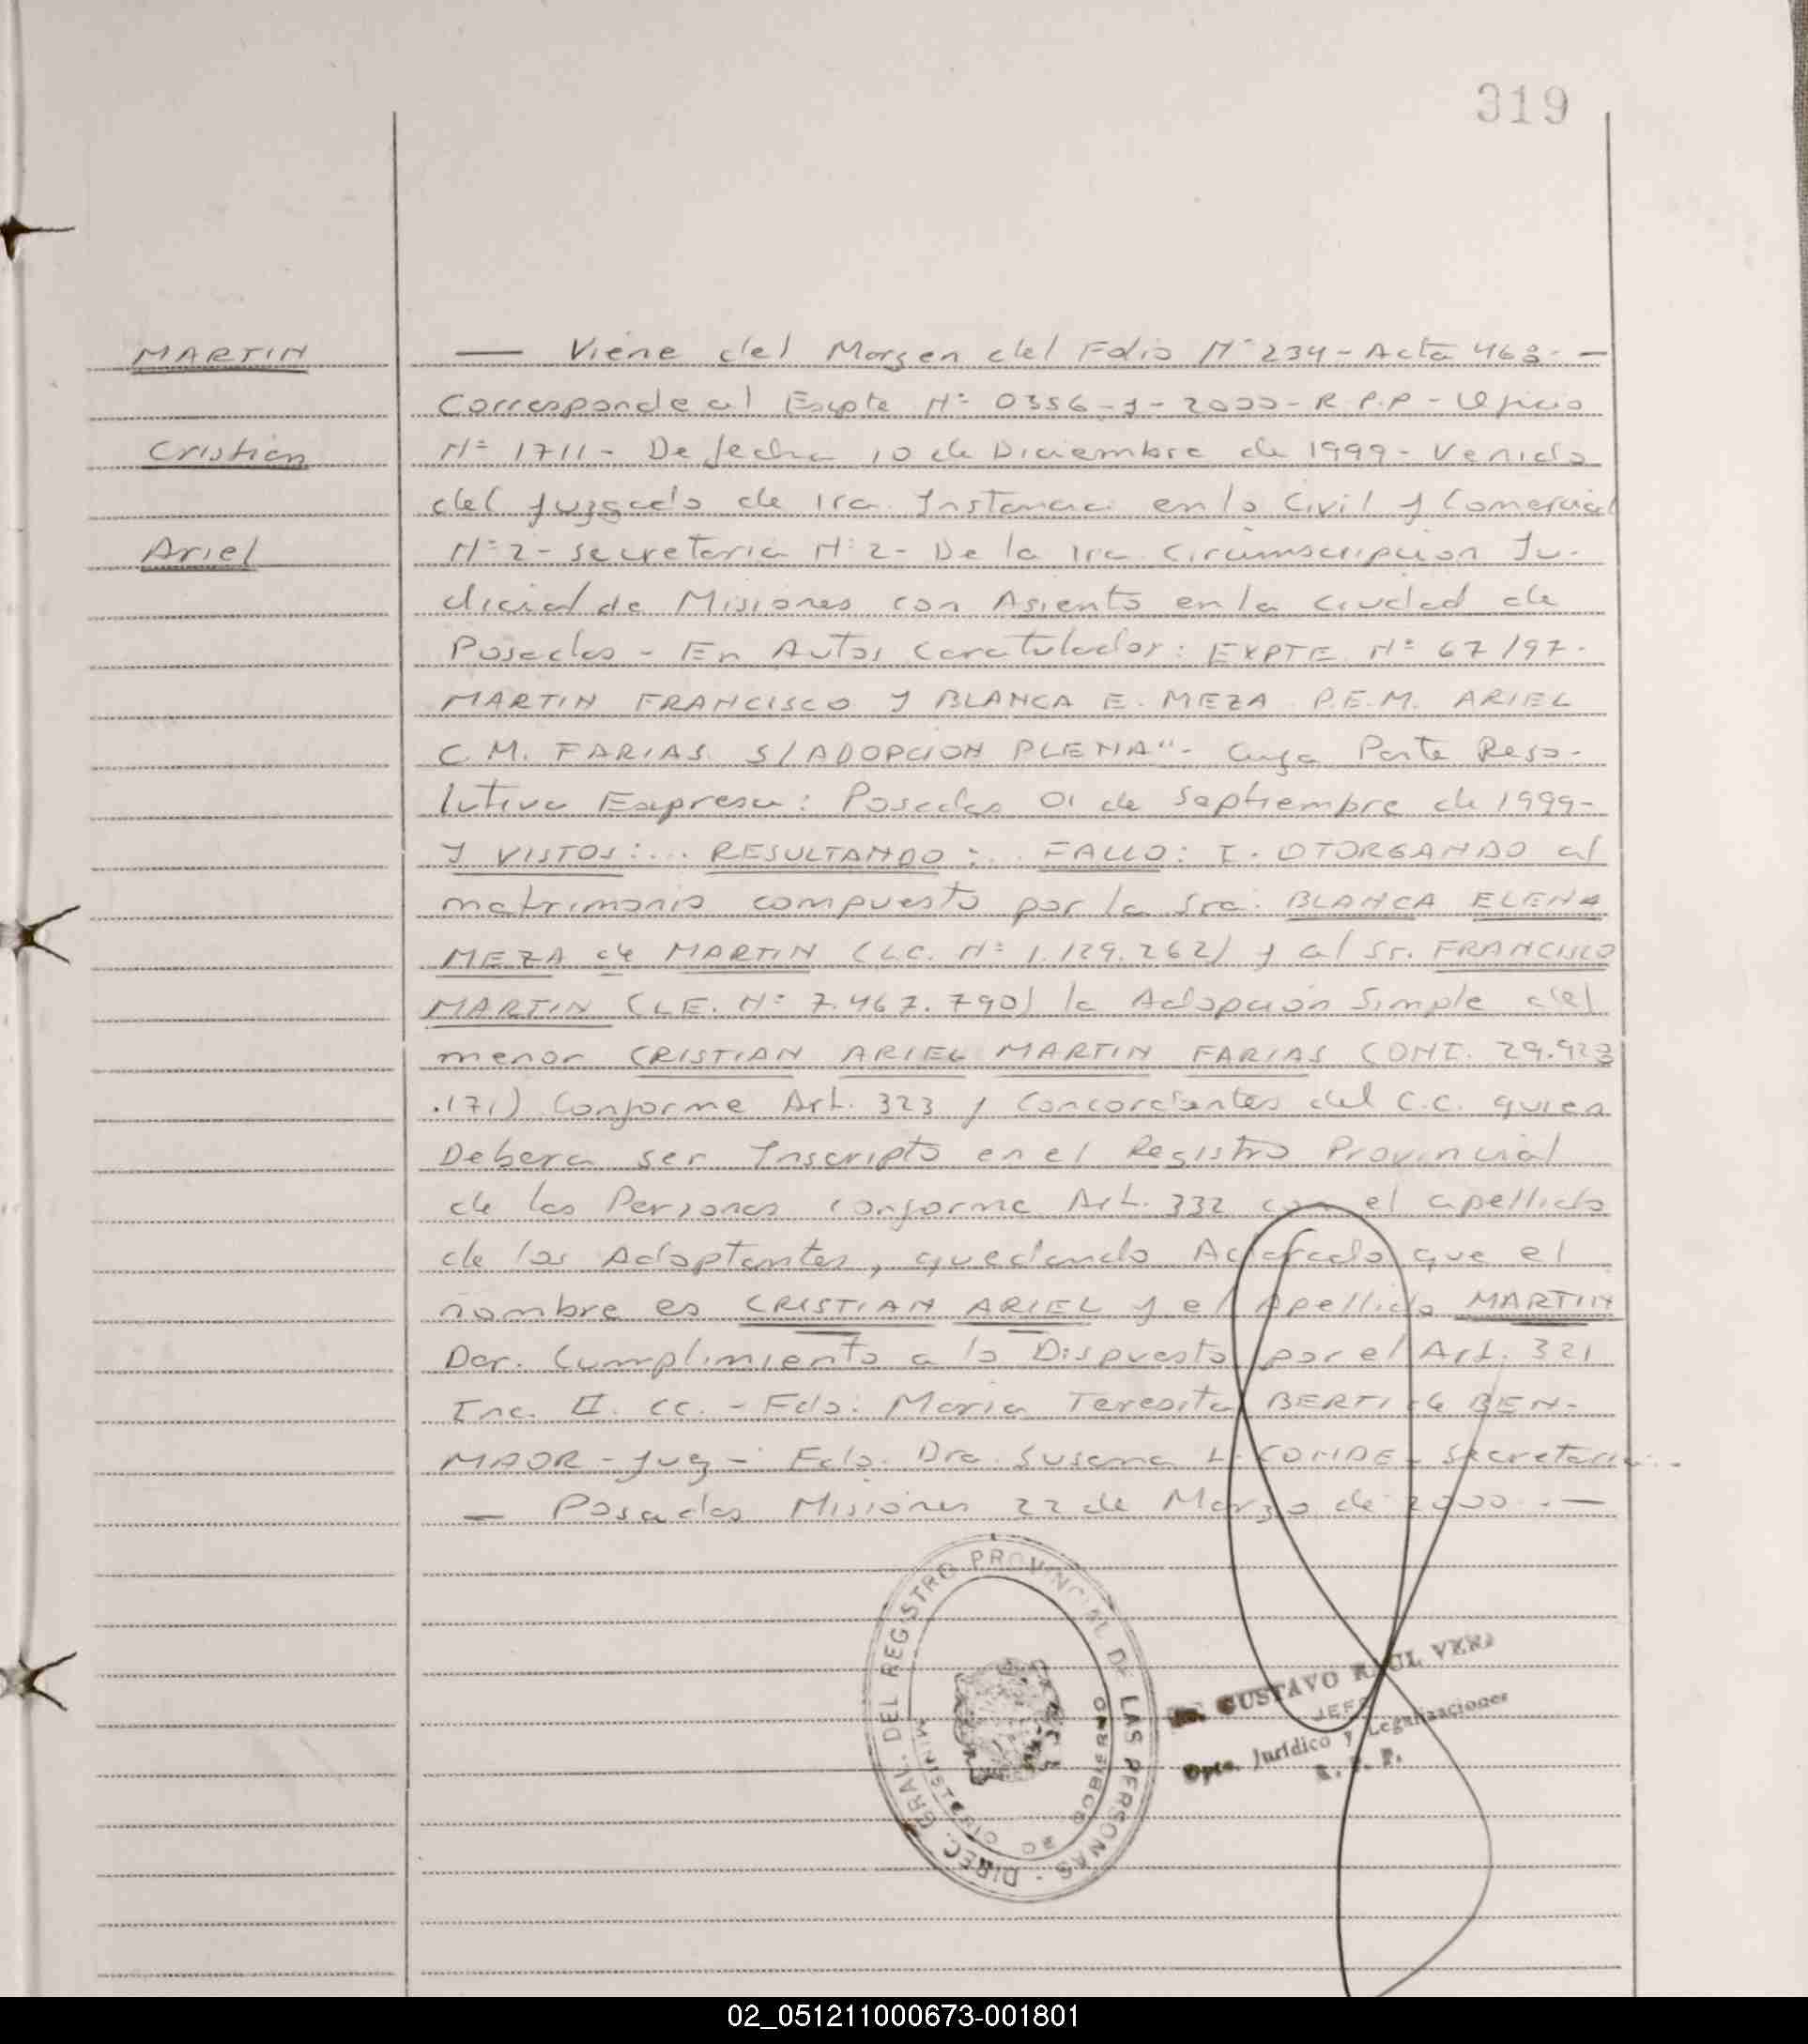 319
MARTIN
Cristian
Ariel
— Viene del Margen del Folio N° 234 - Acta 468. —
Corresponde al Expte N° 0356-J-2000- R.P.P - Oficio
N° 1711 - De fecha 10 de Diciembre de 1999 - Venido
del Juzgado de 1ra. Instancia en lo Civil y Comercial
N° 2 - Secretaria N° 2 - De la 1ra. Circumscripcion Ju-
dicial de Misiones con Asiento en la Ciudad de
Posadas - En Autos Caratulados: EXPTE. N° 67/97.
MARTIN FRANCISCO Y BLANCA E. MEZA P.E.M. ARIEL
C.M. FARIAS. S/ADOPCION PLENA"- Cuya Parte Reso-
lutiva Expresa: Posadas 01 de Septiembre de 1999-
Y VISTOS:... RESULTANDO:... FALLO: I. OTORGANDO al
matrimonio compuesto por la Sra. BLANCA ELENA
MEZA de MARTIN (L.C. N° 1.129.262) y al Sr. FRANCISCO
MARTIN (LE. N° 7.467.790) la Adopción Simple del
menor CRISTIAN ARIEL MARTIN FARIAS (DNI. 29.923
.171) Conforme Art. 323 y Concordantes del C.C. quien
Debera ser Inscripto en el Registro Provincial
de las Personas conforme Art. 332 con el apellido
de los Adoptantes, quedando Aclarado que el
nombre es CRISTIAN ARIEL y el Apellido MARTIN
Dar. Cumplimiento a lo Dispuesto por el Art. 321
Inc. II. CC. - Fdo: Maria Teresita BERTI de BEN-
MAOR - Juez - Fdo. Dra. Susana L. CONDE - Secretaria.-
— Posadas Misiones 22 de Marzo de 2000.—
DIREC. GRAL. DEL REGISTRO PROVINCIAL DE LAS PERSONAS
MINISTERIO DE GOBIERNO
GUSTAVO RAUL VERA
JEFE
Dpto. Jurídico y Legalizaciones
R. P. P.
02_051211000673-001801